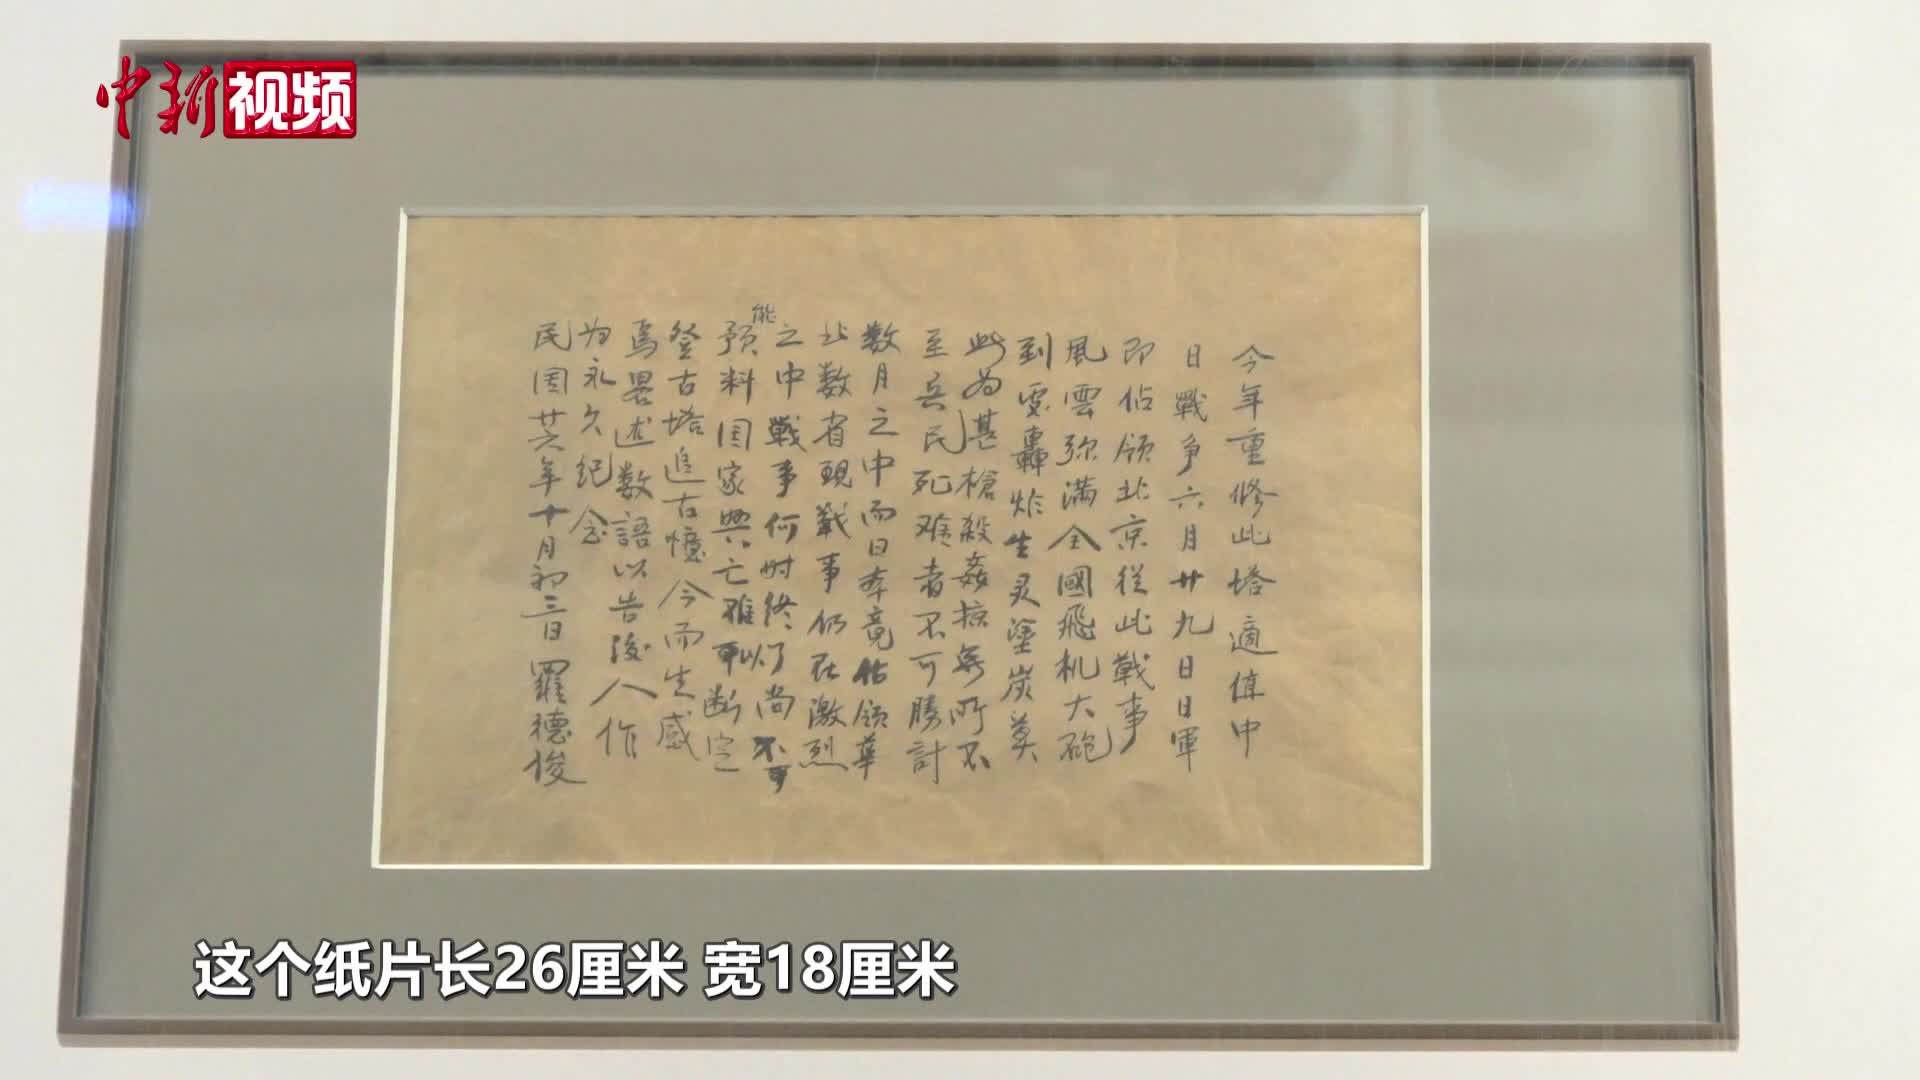 中新视频
今年重修此塔適值中
日戰争六月廿九日日軍
即佔领北京従此戰事
風雲弥满全國飛机大砲
到處轟炸生灵塗炭莫
此为甚槍殺姦掠無所不
至兵民死难者不可勝計
数月之中而日本竟佔领華
北数省現戰事仍在激烈
之中戰事何时终了尚不可
能
預料国家興亡雅可以断定
登古塔追古憶今而生感
焉畧述数語以告後人作
为永久纪念
民国廿六年十月初三日羅德俊
这个纸片长26厘米 宽18厘米